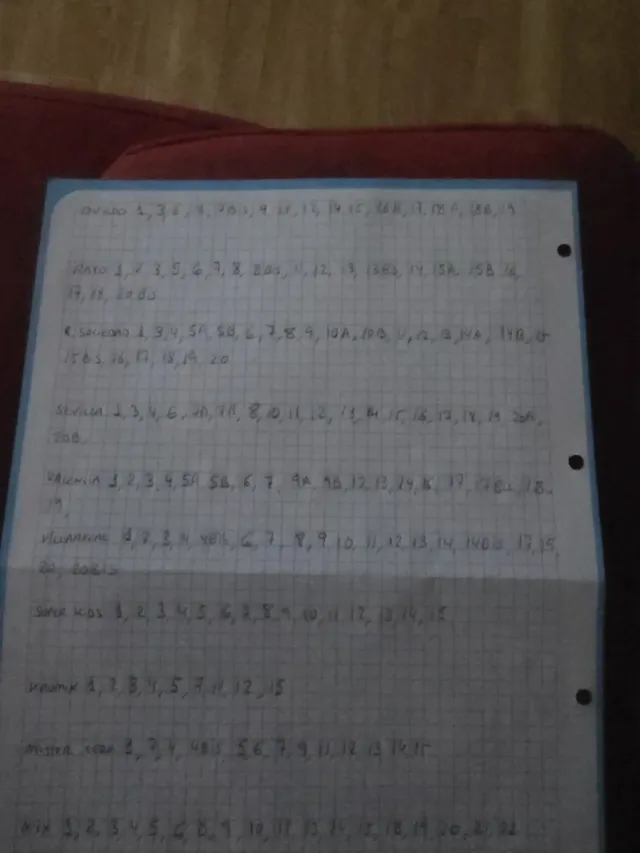 Oviedo 1, 3, 5, 7, 7Bis, 9, 11, 12, 14, 15, 16B, 17, 18A, 18B, 19
Rayo 1, 2, 3, 5, 6, 7, 8, 8Bis, 11, 12, 13, 13Bis, 14, 15A, 15B, 16,
17, 18, 20Bis
R. Sociedad 1, 3, 4, 5A, 5B, 6, 7, 8, 9, 10A, 10B, 11, 12, 13, 14A, 14B, 15
15Bis, 16, 17, 18, 19, 20
Sevilla 1, 3, 4, 6, 7A, 7B, 8, 10, 11, 12, 13, 14, 15, 16, 17, 18, 19, 20A,
20B
Valencia 1, 2, 3, 4, 5A, 5B, 6, 7, 9A, 9B, 12, 13, 14, 16, 17, 17Bis, 18,
19,
Villarreal 1, 2, 3, 4, 4Bis, 6, 7, 8, 9, 10, 11, 12, 13, 14, 14Bis, 17, 19,
20, 20Bis
1, 2, 3, 4, 5, 6, 7, 8, 9, 10, 11, 12, 13, 14, 15
1, 2, 3, 4, 5, 7, 11, 12, 15
1, 2, 4, 4Bis, 5, 6, 7, 9, 11, 12, 13, 14, 15
1, 2, 3, 4, 5, 6, 8, 9, 10, 12, 13, 14, 15, 18, 19, 20, 21, 22